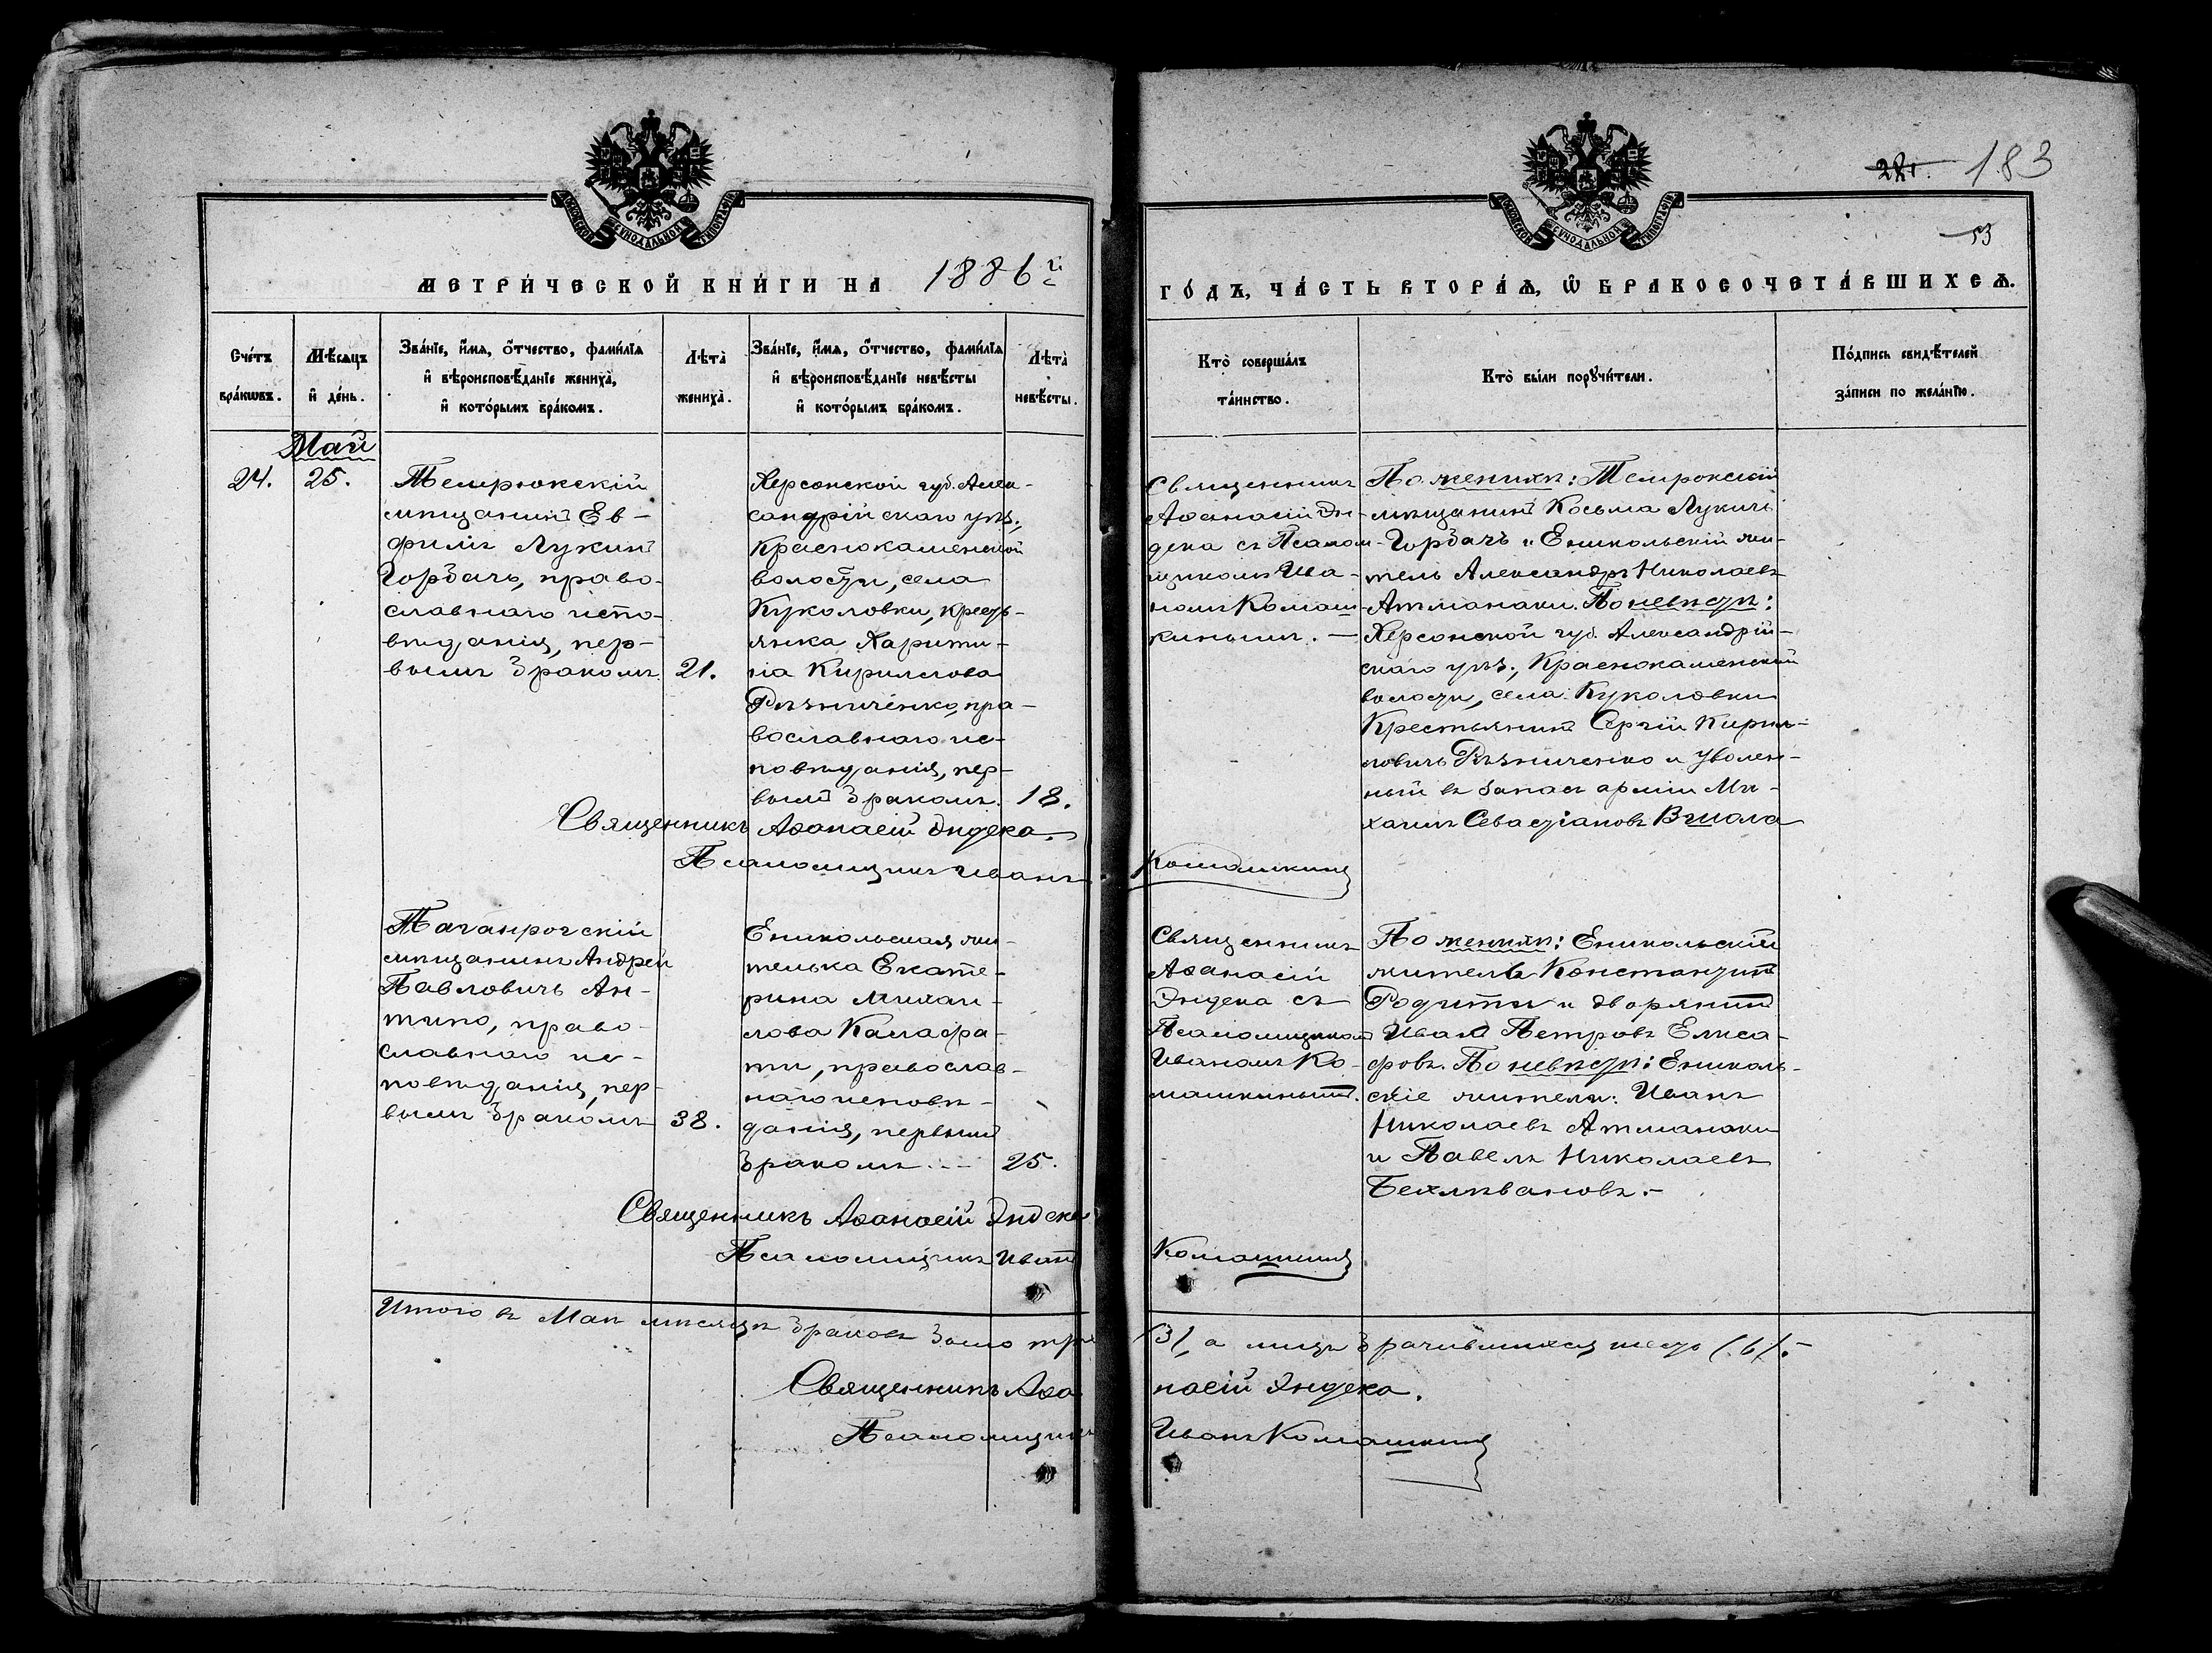 183
53
МОСКОВСКОЙ СѴНОДАЛЬНОЙ ТИПОГРАФІИ
МОСКОВСКОЙ СѴНОДАЛЬНОЙ ТИПОГРАФІИ
МЕТРИ́ЧЕСКОЙ КНИ́ГИ НА 1886й
ГО́ДЪ, ЧА́СТЬ ВТОРА́Ѧ, Ѡ БРАКОСОЧЕТА́ВШИХСѦ.
Сче́тъ
бра́кѡвъ.
Мѣ́сяцъ
и҆ де́нь.
Зва́нїе, и҆́мѧ, ѻ҆́тчество, фами́лїѧ
и҆ вѣроисповѣ́данїе жениха̀,
и҆ кото́рымъ бра́комъ.
Лѣта̀
жениха̀.
Зва́нїе, и҆́мѧ, ѻ҆́тчество, фами́лїѧ
и҆ вѣроисповѣ́данїе невѣ́сты
и҆ кото́рымъ бра́комъ.
Лѣта̀
невѣ́сты.
Кто̀ соверша́лъ
та́инство.
Кто̀ бы́ли порꙋчи́тели.
По́дпись свидѣ́телей
за́писи по жела́нїю.
Май
24. 25.
Темрюкскій
мѣщанинъ Ев-
филъ Лукинъ
Горбачъ, право-
славнаго испо-
вѣданія, пер-
вымъ бракомъ
21.
Херсонской губ. Алек-
сандрійскаго уѣз.,
Краснокаменской
волости, села
Куколовки, кресть-
янка Харити-
на Кириллова
Рѣзниченко, пра-
вославнаго ис-
повѣданія, пер-
вымъ бракомъ.
18.
Священникъ
Аѳанасій Эн-
дека съ Псалом-
щикомъ Ива-
номъ Комаш-
кинымъ. —
По женихѣ: Темрюкскій
мѣщанинъ Косьма Лукичъ
Горбачъ и Еникольскій жи-
тель Александръ Николаевъ
Атманаки. По невѣстѣ:
Херсонской губ. Александрій-
скаго уѣз., Краснокаменской
волости, села Куколовки
Крестьянинъ Сергій Кирил-
ловичъ Рѣзниченко и уволен-
ный въ запасъ арміи Ми-
хаилъ Севастіановъ
Священникъ Аѳанасій Эндека.
Псаломщикъ Иванъ Комашкинъ
Таганрогскій
мѣщанинъ Андрей
Павловичъ Ан-
типо, право-
славнаго ис-
повѣданія, пер-
вымъ бракомъ
38.
Еникольская жи-
телька Екате-
рина Михаи-
лова Калафа-
ти, православ-
наго исповѣ-
данія, первымъ
бракомъ. --
25.
Священникъ
Аѳанасій
Эндека съ
Псаломщикомъ
Иваномъ Ко-
машкинымъ.
По женихѣ: Еникольскій
житель Константинъ
Родити и дворянинъ
Иванъ Петровъ Елиса-
фовъ. По невѣстѣ: Ениколь-
скіе жители: Иванъ
Николаевъ Атманаки
и Павелъ Николаевъ
Бехливановъ.-
Священникъ Аѳанасій Эндека
Псаломщикъ Иванъ Комашкинъ
Итого въ Маѣ мѣсяцѣ браковъ было три (3), а лицъ брачившихся шесть (6).-
Священникъ Аѳанасій Эндека.
Псаломщикъ Иванъ Комашкинъ